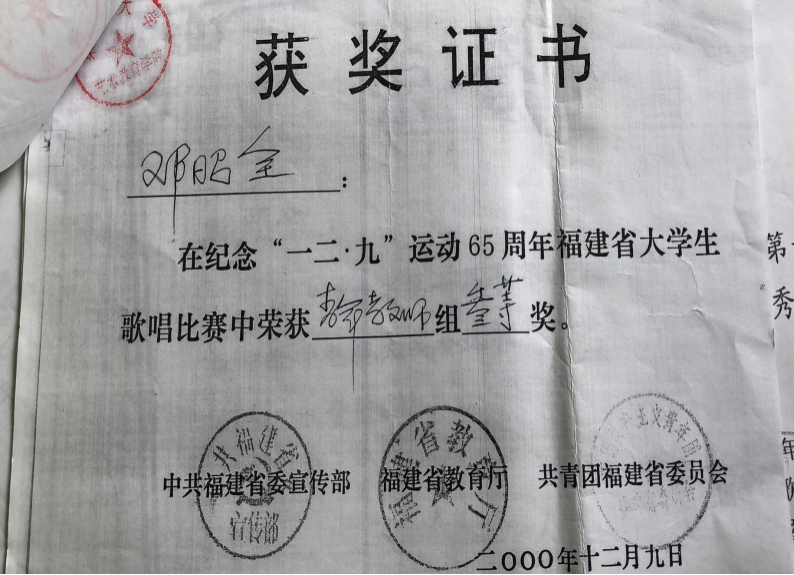 获奖证书
邓昭全：
在纪念“一二·九”运动65周年福建省大学生
歌唱比赛中荣获青年教师组叁等奖。
中共福建省委宣传部 福建省教育厅 共青团福建省委员会
二000年十二月九日
共福建省
宣传部
福建省教 厅
第
秀